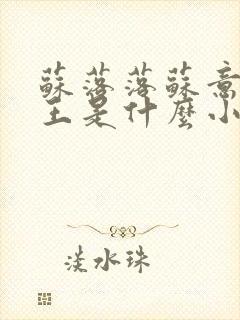 蘇落落蘇意
主是什麼小
淡水珠